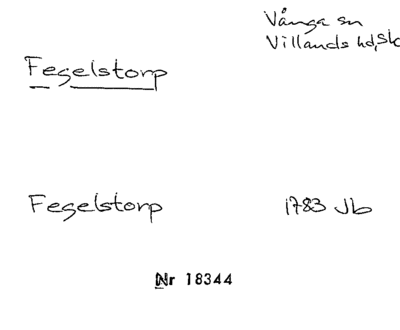 Vånga sn
Villands hd, Sk
Fegelstorp
Fegelstorp 1783 Jb
Nr 18344